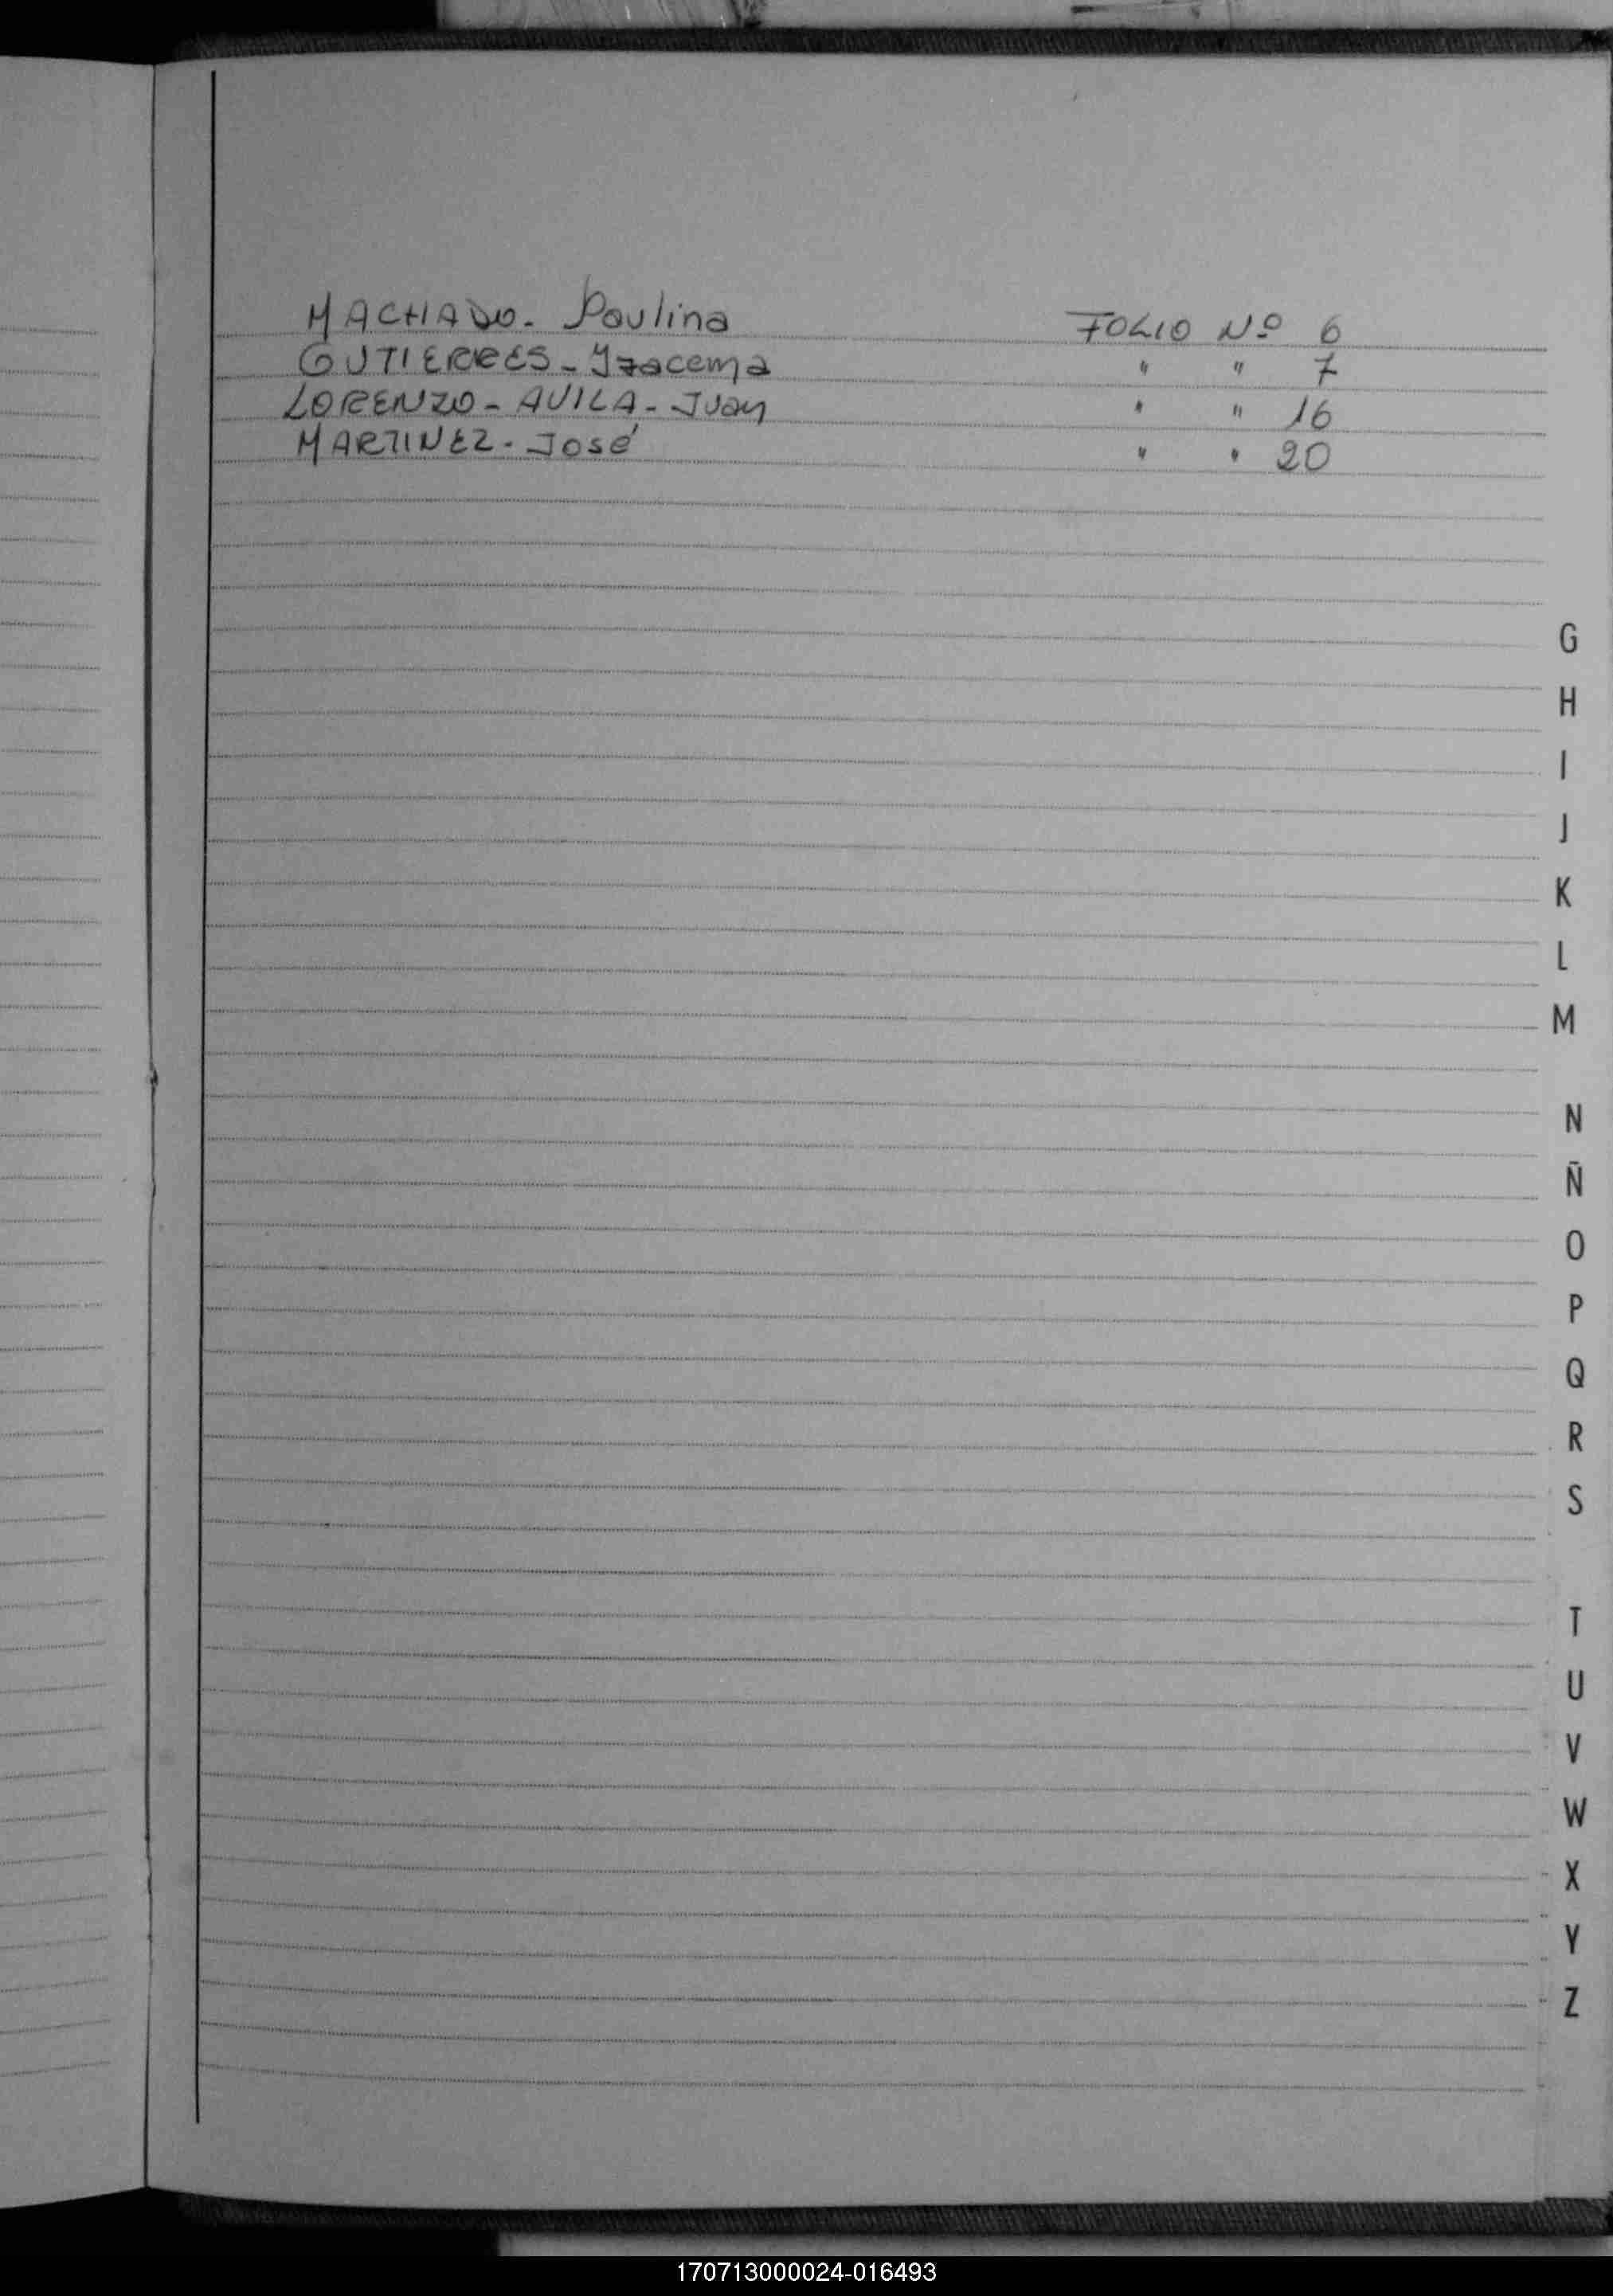 MACHADO - Paulina FOLIO Nº 6
GUTIERRES - Yracema " " 7
LORENZO - AVILA - Juan " " 16
MARTINEZ - José " " 20
G
H
I
J
K
L
M
N
Ñ
O
P
Q
R
S
T
U
V
W
X
Y
Z
170713000024-016493